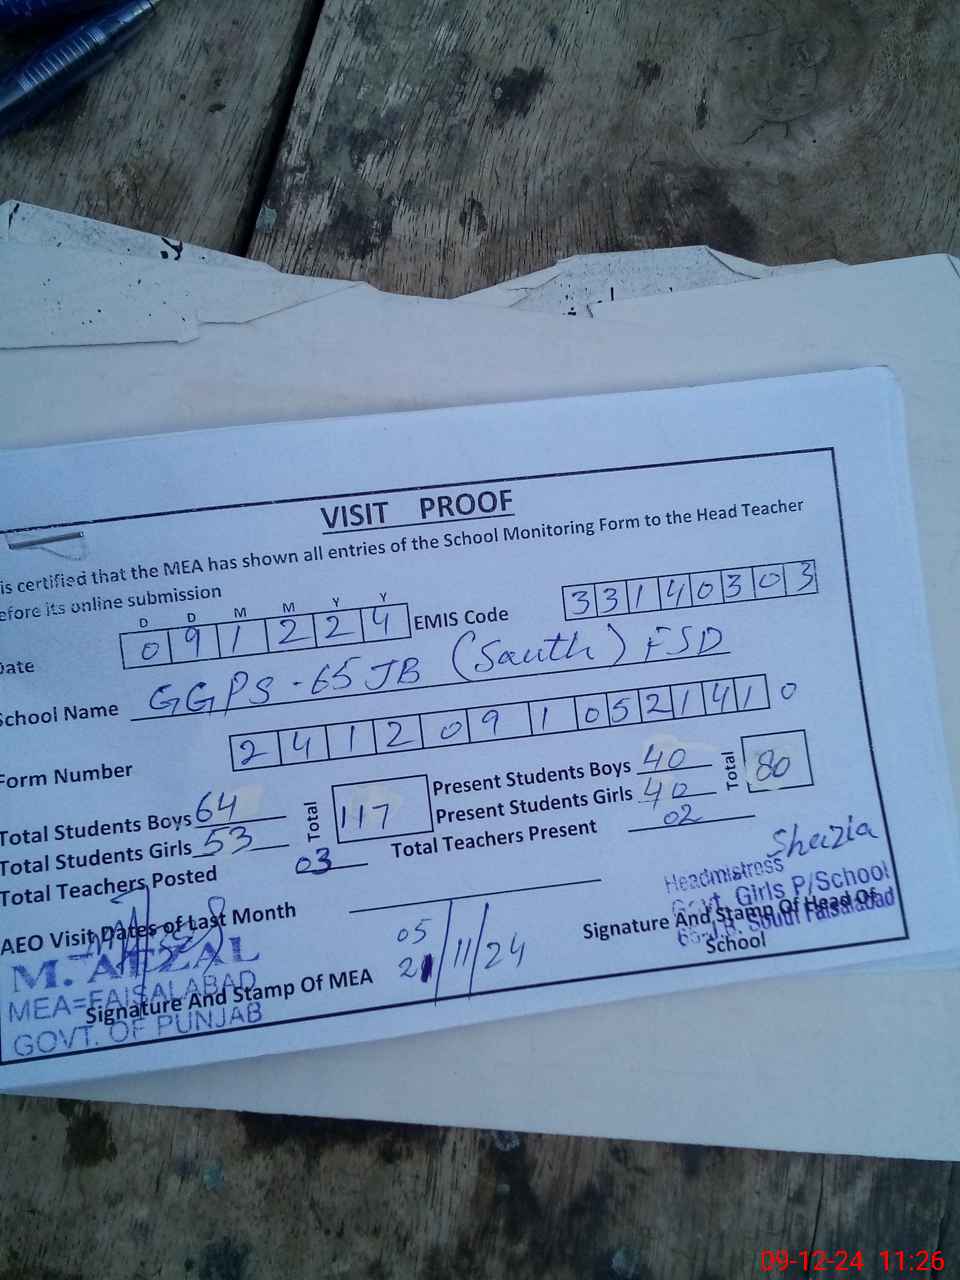 VISIT PROOF
is certified that the MEA has shown all entries of the School Monitoring Form to the Head Teacher
efore its online submission
D D M M Y Y
Date 0 9 1 2 2 4 EMIS Code 3 3 1 4 0 3 0 3
School Name GGPS-65 JB (South) FSD
Form Number 2 4 1 2 0 9 1 0 5 2 1 4 1 0
Total Students Boys 64 Total 117 Present Students Boys 40 Total 80
Total Students Girls 53 Present Students Girls 40
Total Teachers Posted 03 Total Teachers Present 02
AEO Visit Dates of Last Month
05
21 /11/24
Shazia
Headmistress
Govt. Girls P/School
65-J.B. South Faisalabad
Signature And Stamp Of Head Of
School
M. AFZAL
MEA=FAISALABAD
GOVT. OF PUNJAB
Signature And Stamp Of MEA
09-12-24 11:26